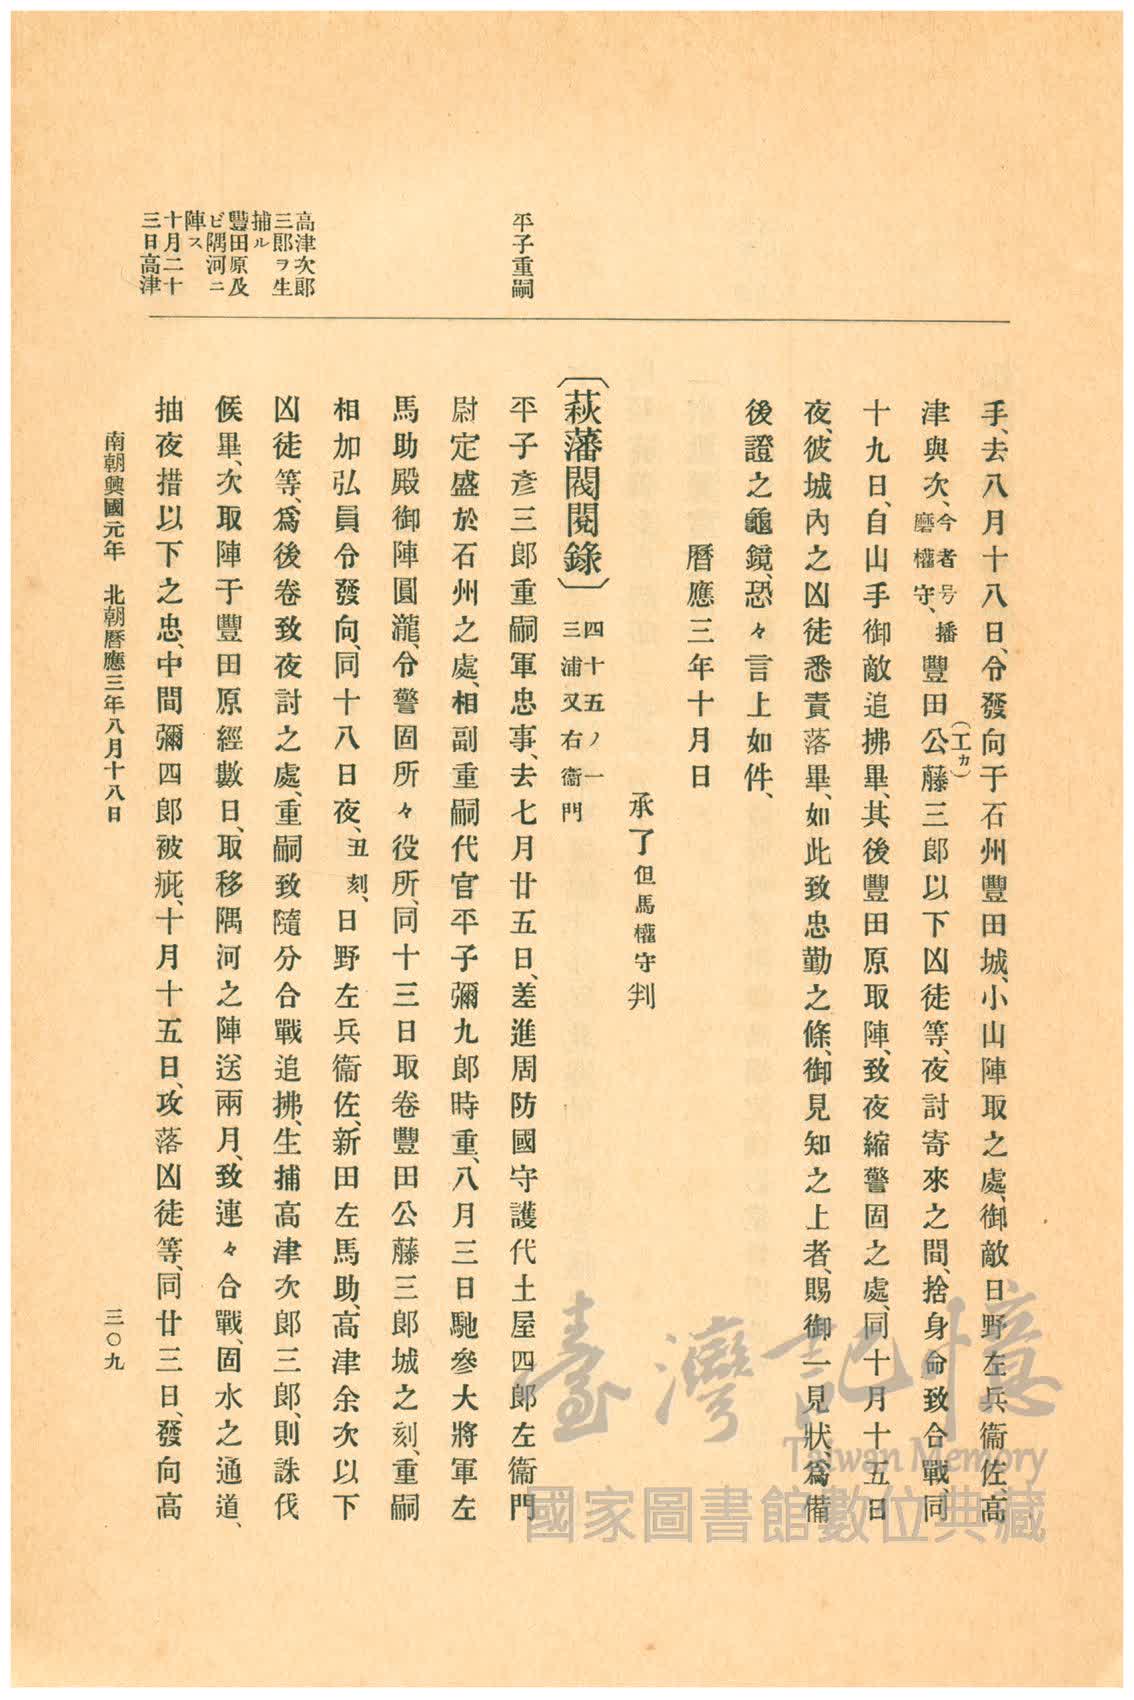 手、去八月十八日、令發向于石州豐田城、小山陣取之處、御敵日野左兵衞佐、高
津與次、今者号播磨權守、豐田公藤三郎以下凶徒等、夜討寄來之間、捨身命致合戰、同
（工カ）
十九日、自山手御敵追拂畢、其後豐田原取陣、致夜縮警固之處、同十月十五日
夜、彼城內之凶徒悉責落畢、如此致忠勤之條、御見知之上者、賜御一見狀、爲備
後證之龜鏡、恐々言上如件、
曆應三年十月日
承了但馬權守判
〔萩藩閥閱錄〕四十五ノ一三浦又右衞門
平子重嗣
平子彥三郎重嗣軍忠事、去七月廿五日、差進周防國守護代土屋四郎左衞門
尉定盛於石州之處、相副重嗣代官平子彌九郎時重、八月三日馳參大將軍左
馬助殿御陣圓瀧、令警固所々役所、同十三日取卷豐田公藤三郎城之刻、重嗣
相加弘員令發向、同十八日夜、丑刻、日野左兵衞佐、新田左馬助、高津余次以下
凶徒等、爲後卷致夜討之處、重嗣致隨分合戰追拂、生捕高津次郎三郎、則誅伐
候畢、次取陣于豐田原經數日、取移隅河之陣送兩月、致連々合戰、固水之通道、
抽夜措以下之忠、中間彌四郎被疵、十月十五日、攻落凶徒等、同廿三日、發向高
高津次郎
三郎ヲ生
捕ル
豐田原及
ビ隅河ニ
陣ス
十月二十
三日高津
南朝興國元年 北朝曆應三年八月十八日
三〇九
臺灣記憶
Taiwan Memory
國家圖書館數位典藏